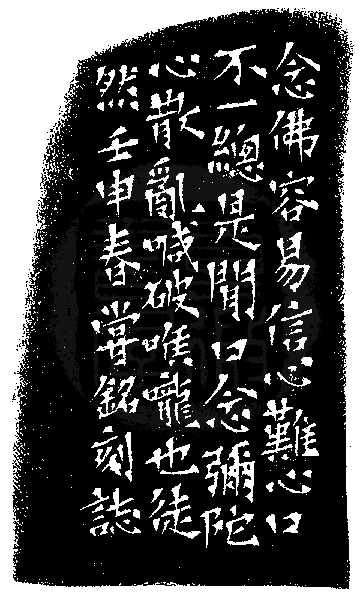 念佛容易信心難心口
不一總是閒口念彌陀
心散亂喊破喉嚨也徒
然壬申春銘刻誌